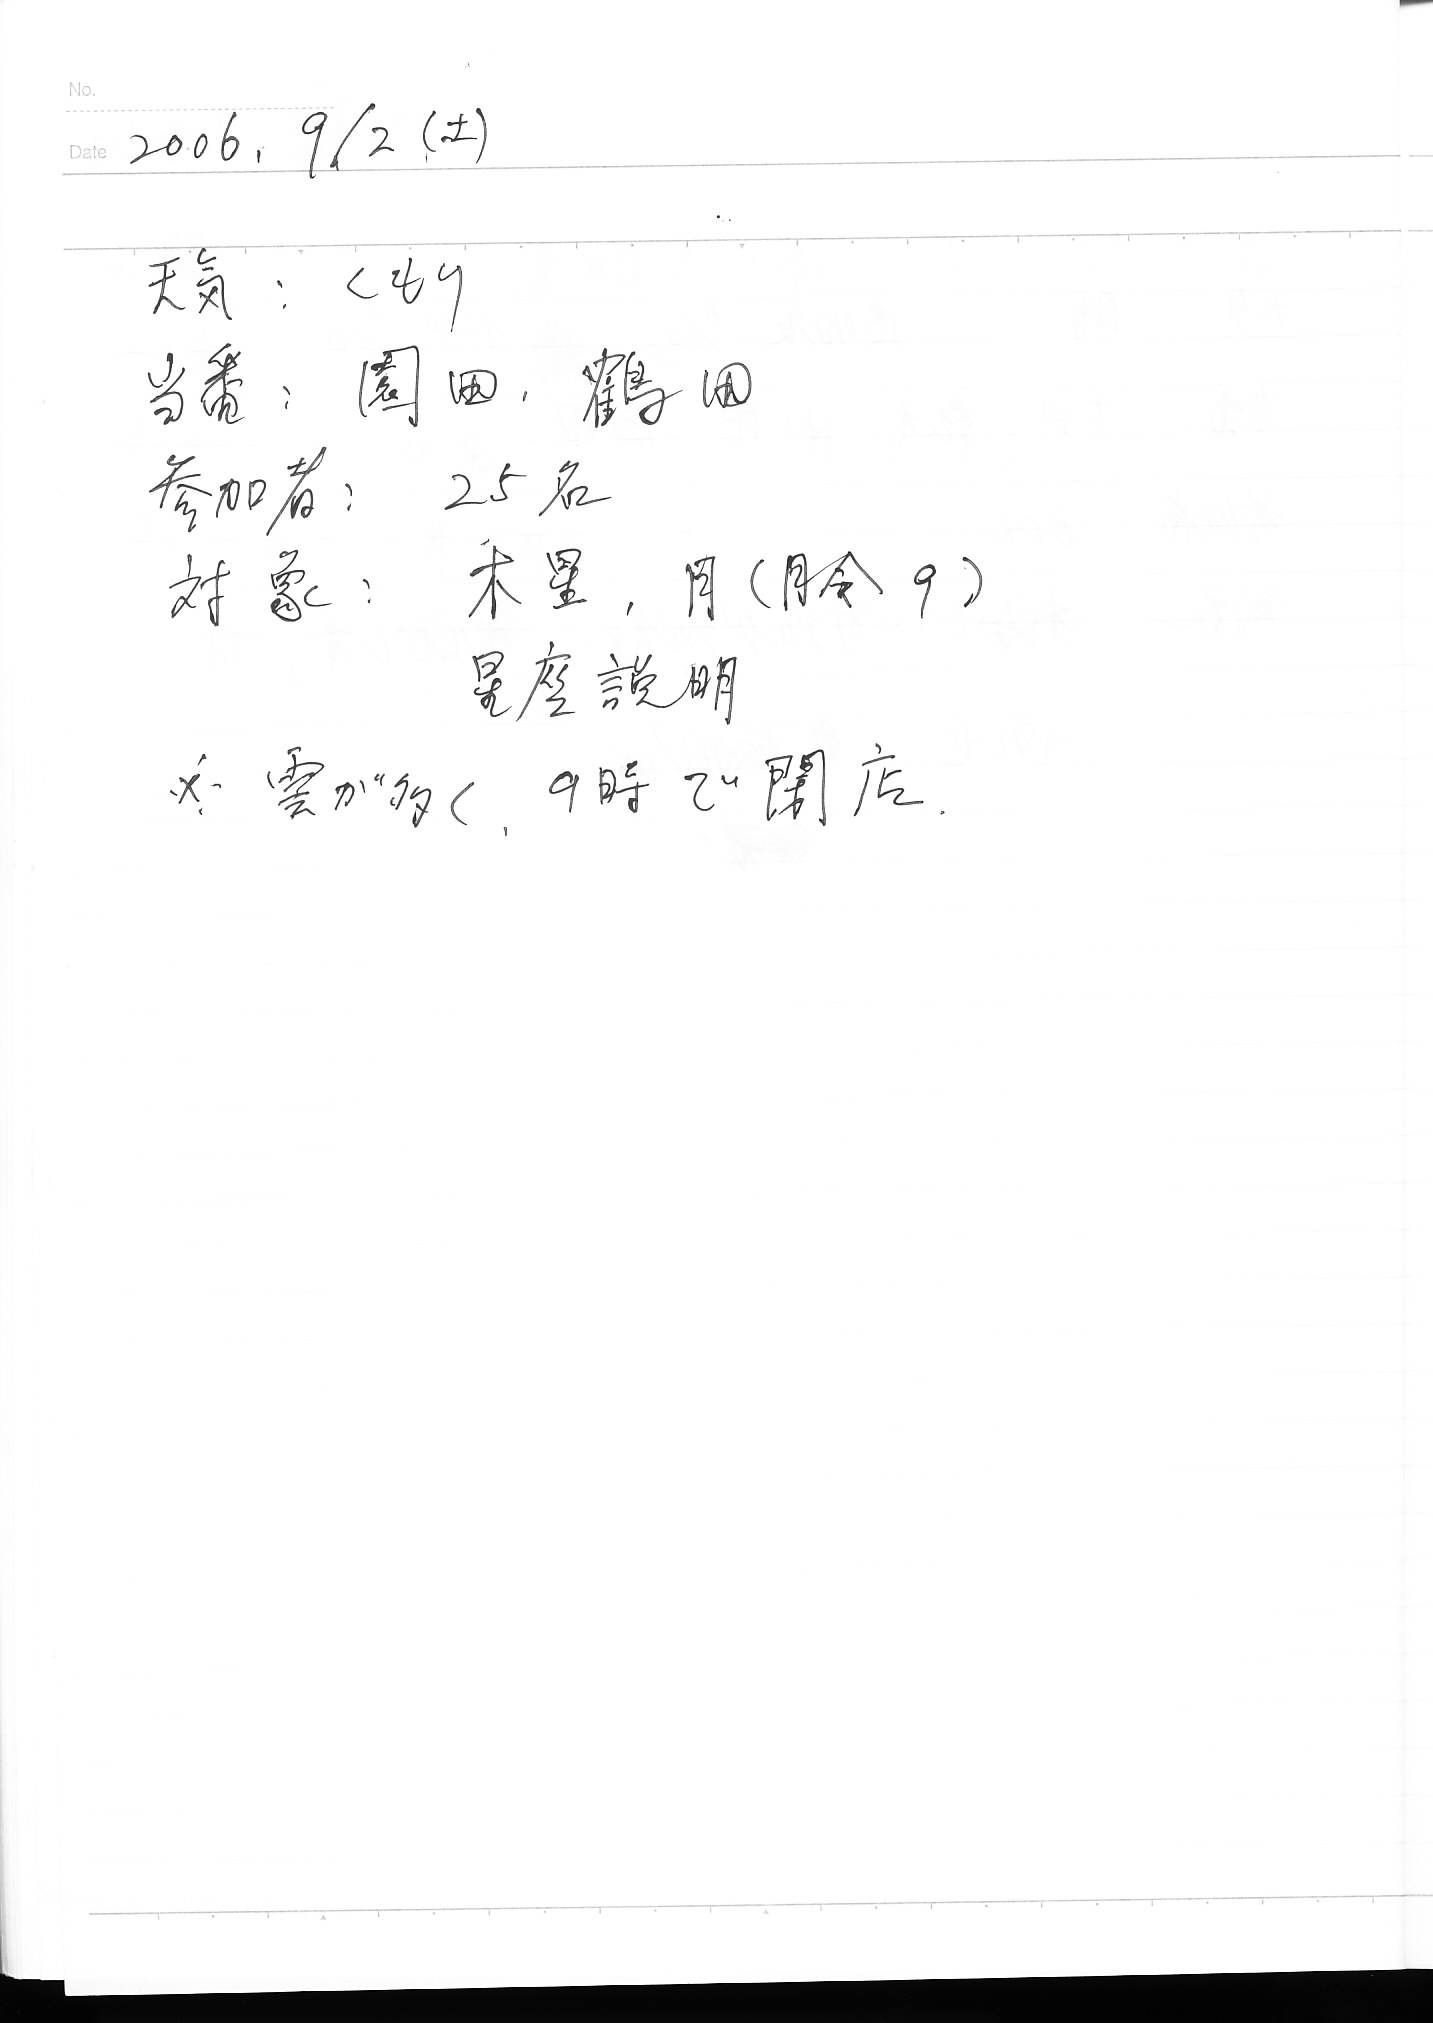 No.
Date 2006. 9/2 (土)
天気: くもり
当番: 園田. 鶴田
参加者: 25名
対象: 木星, 月(月令9)
星座説明
※ 雲が多く, 9時で閉店.